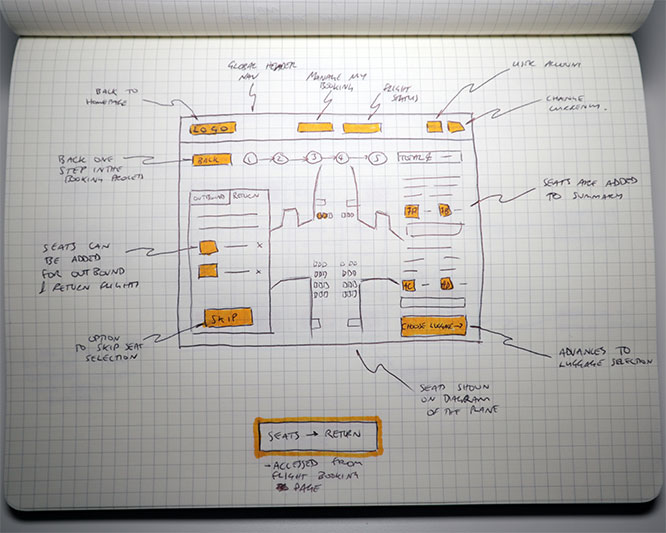 GLOBAL HEADER
NAV
MANAGE MY
BOOKING
FLIGHT
STATUS
USER ACCOUNT
BACK TO
HOMEPAGE
CHANGE
CURRENCY.
LOGO
BACK ONE
STEP IN THE
BOOKING PROCESS
BACK
1 2 3 4 5
TOTAL £
OUTBOUND RETURN
SEATS ARE ADDED
TO SUMMARY
SEATS CAN
BE ADDED
FOR OUTBOUND
& RETURN FLIGHT
x
x
SKIP
CHOOSE LUGGAGE →
OPTION
TO SKIP SEAT
SELECTION
ADVANCES TO
LUGGAGE SELECTION
SEATS SHOWN
ON DIAGRAM
OF THE PLANE
SEATS → RETURN
→ ACCESSED FROM
FLIGHT BOOKING
PAGE